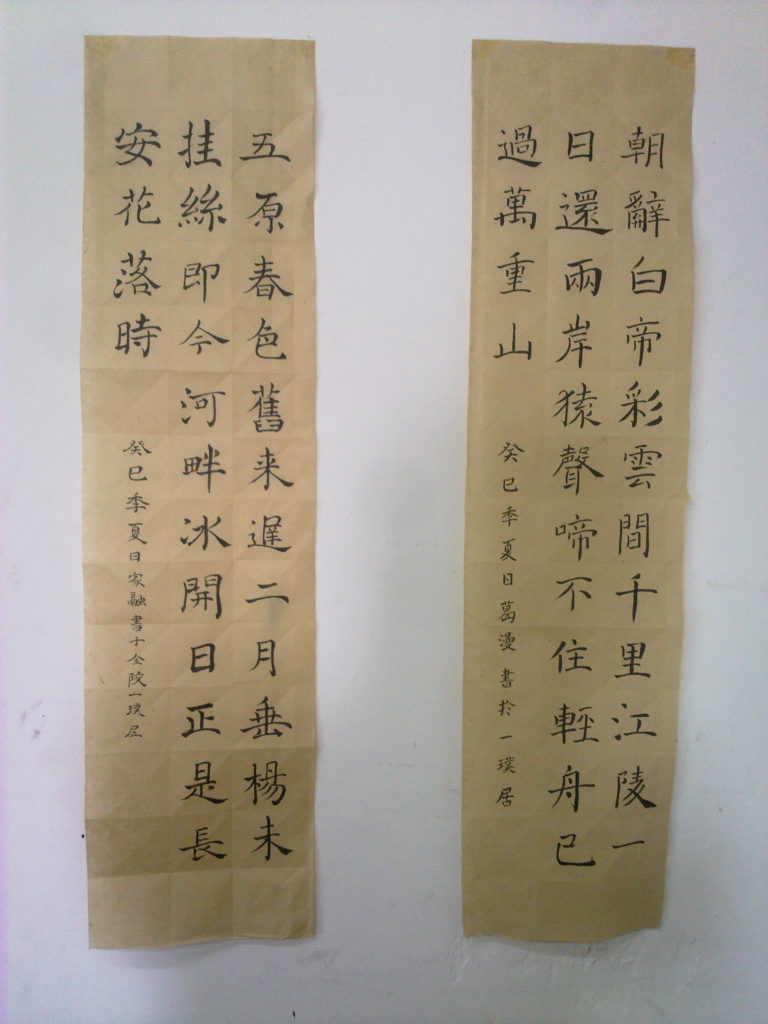 朝辭白帝彩雲間千里江陵一
日還兩岸猿聲啼不住輕舟已
過萬重山
癸巳季夏日葛漫書於一璞居
五原春色舊来遲二月垂楊未
挂絲即今河畔冰開日正是長
安花落時
癸巳季夏日家融書于金陵一璞居